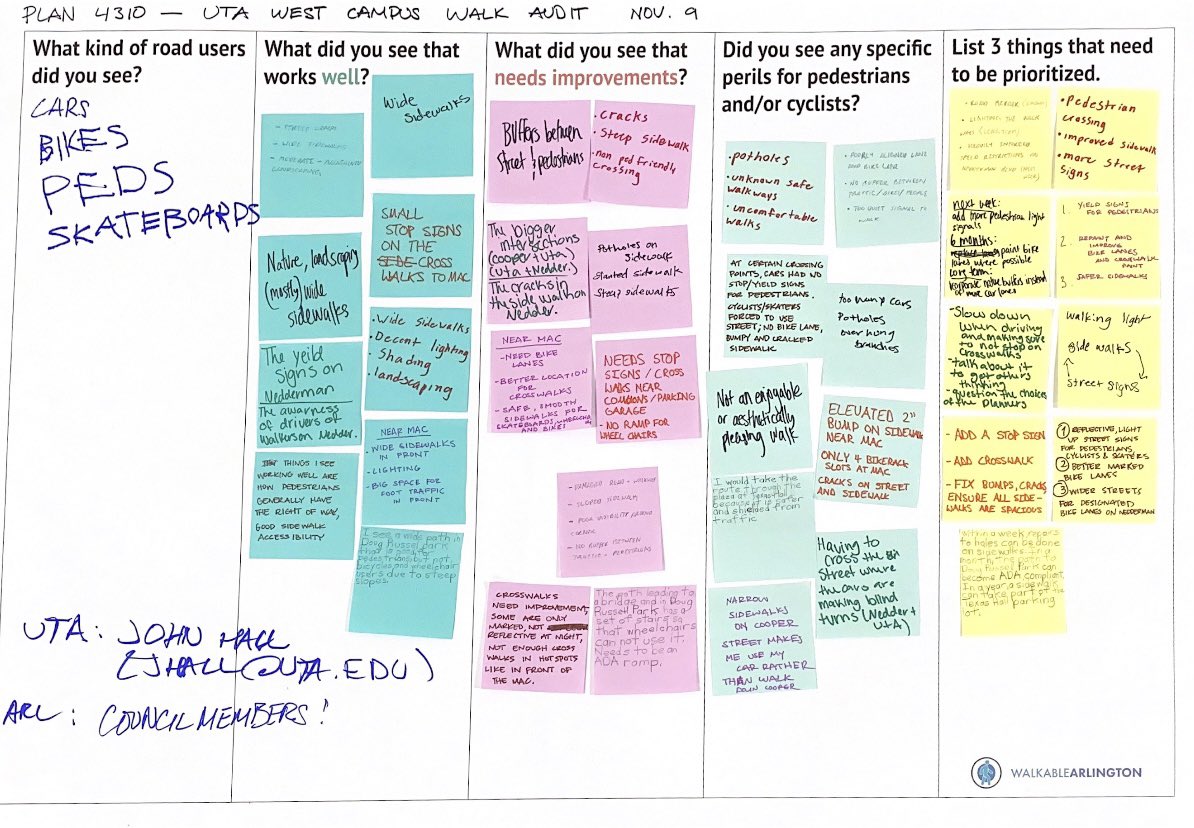 PLAN 4310 — UTA WEST CAMPUS WALK AUDIT NOV. 9
What kind of road users
did you see?
CARS
BIKES
PEDS
SKATEBOARDS
UTA: JOHN HALL
(JHALL@UTA.EDU)
ARL: COUNCILMEMBERS!
What did you see that
works well?
Wide
Sidewalks
- WIDE SIDEWALKS
LANDSCAPING
SMALL
STOP SIGNS
ON THE
SIDE CROSS
WALKS TO MAC
Nature, landscaping
(mostly) wide
sidewalks
• Wide sidewalks
• Decent lighting
• Shading
• landscaping
The yeild
Signs on
Nedderman
The awarness
of drivers of
walkers on Nedder.
NEAR MAC
- WIDE SIDEWALKS
IN FRONT
- LIGHTING
- BIG SPACE FOR
FOOT TRAFFIC
IN FRONT
THINGS I SEE
WORKING WELL ARE
HOW PEDESTRIANS
GENERALLY HAVE
THE RIGHT OF WAY,
GOOD SIDEWALK
ACCESSIBILITY
I see a wide path in
Doug Russel park
that is good for
pedestrians but not
bicycles and wheelchair
users due to steep
slopes.
What did you see that
needs improvements?
Buffers between
street & pedestrians
• cracks
• Steep sidewalk
• non ped friendly
crossing
The bigger
intersections
(cooper + uta)
(uta + Nedder.)
The cracks in
the side walk on
Nedder.
Potholes on
sidewalk
Slanted sidewalk
Steep sidewalks
NEAR MAC
- NEED BIKE
LANES
- BETTER LOCATION
FOR
CROSSWALKS
- SAFE, SMOOTH
SIDEWALKS FOR
SKATEBOARDS, WHEELCHAIR
AND BIKE!
NEEDS STOP
SIGNS / CROSS
WALKS NEAR
COMMONS / PARKING
GARAGE
- NO RAMP FOR
WHEEL CHAIRS
- SLOPED SIDEWALK
- POOR VISIBILITY AROUND
CORNER
- NO BUFFER BETWEEN
TRAFFIC - PEDESTRIANS
CROSSWALKS
NEED IMPROVEMENT,
SOME ARE ONLY
MARKED, NOT
REFLECTIVE AT NIGHT,
NOT ENOUGH CROSS
WALKS IN HOTSPOTS
LIKE IN FRONT OF
THE MAC.
The path leading to
a bridge and in Doug
Russel Park has a
set of stairs so
that wheelchairs
can not use it.
Needs to be an
ADA ramp.
Did you see any specific
perils for pedestrians
and/or cyclists?
• potholes
• unknown safe
walkways
• uncomfortable
walks
• POORLY ALIGNED LANE
AND BIKE LANE
• NO BUFFER BETWEEN
TRAFFIC/BIKES/PEOPLE
• TOO QUIET SIGNAL TO
WALK
AT CERTAIN CROSSING
POINTS, CARS HAD NO
STOP/YIELD SIGNS
FOR PEDESTRIANS.
CYCLISTS/SKATERS
FORCED TO USE
STREET; NO BIKE LANE,
BUMPY AND CRACKED
SIDEWALK
too many cars
Potholes
over hung
branches
Not an enjoyable
or aesthetically
pleasing walk
ELEVATED 2"
BUMP ON SIDEWALK
NEAR MAC
ONLY 4 BIKERACK
SLOTS AT MAC
CRACKS ON STREET
AND SIDEWALK
I would take the
route through the
because it is safer
and shielded from
traffic
Having to
cross the
street where
the cars are
making blind
turns (Nedder +
UTA)
NARROW
SIDEWALKS
ON COOPER
STREET MAKES
ME USE MY
CAR RATHER
THAN WALK
DOWN COOPER
List 3 things that need
to be prioritized.
SPEED RESTRICTIONS ON
• Pedestrian
crossing
• improved sidewalk
• more street
signs
next week:
add more pedestrian light
signals
6 months:
paint bike
lanes where possible
long term:
of more car lanes
1. YIELD SIGNS
FOR PEDESTRIANS
2. REPAINT AND
IMPROVE
BIKE LANES
AND CROSSWALK
PAINT
3. SAFER SIDEWALKS
- Slow down
when driving
and making sure
to not stop on
Crosswalks
- talk about it
to get others
thinking
- question the choices
of the planners
walking light
side walks
street signs
- ADD A STOP SIGN
- ADD CROSSWALK
- FIX BUMPS, CRACKS
ENSURE ALL SIDE-
WALKS ARE SPACIOUS
① REFLECTIVE, LIGHT
UP STREET SIGNS
FOR PEDESTRIANS,
CYCLISTS & SKATERS
② BETTER MARKED
BIKE LANES
③ WIDER STREETS
FOR DESIGNATED
BIKE LANES ON NEDDERMAN
Within a week repairs
to holes can be done
on sidewalks. In a
month the path to
Doug Russel Park can
become ADA compliant.
In a year a sidewalk
can take part of the
Texas Hall parking
lot.
WALKABLEARLINGTON